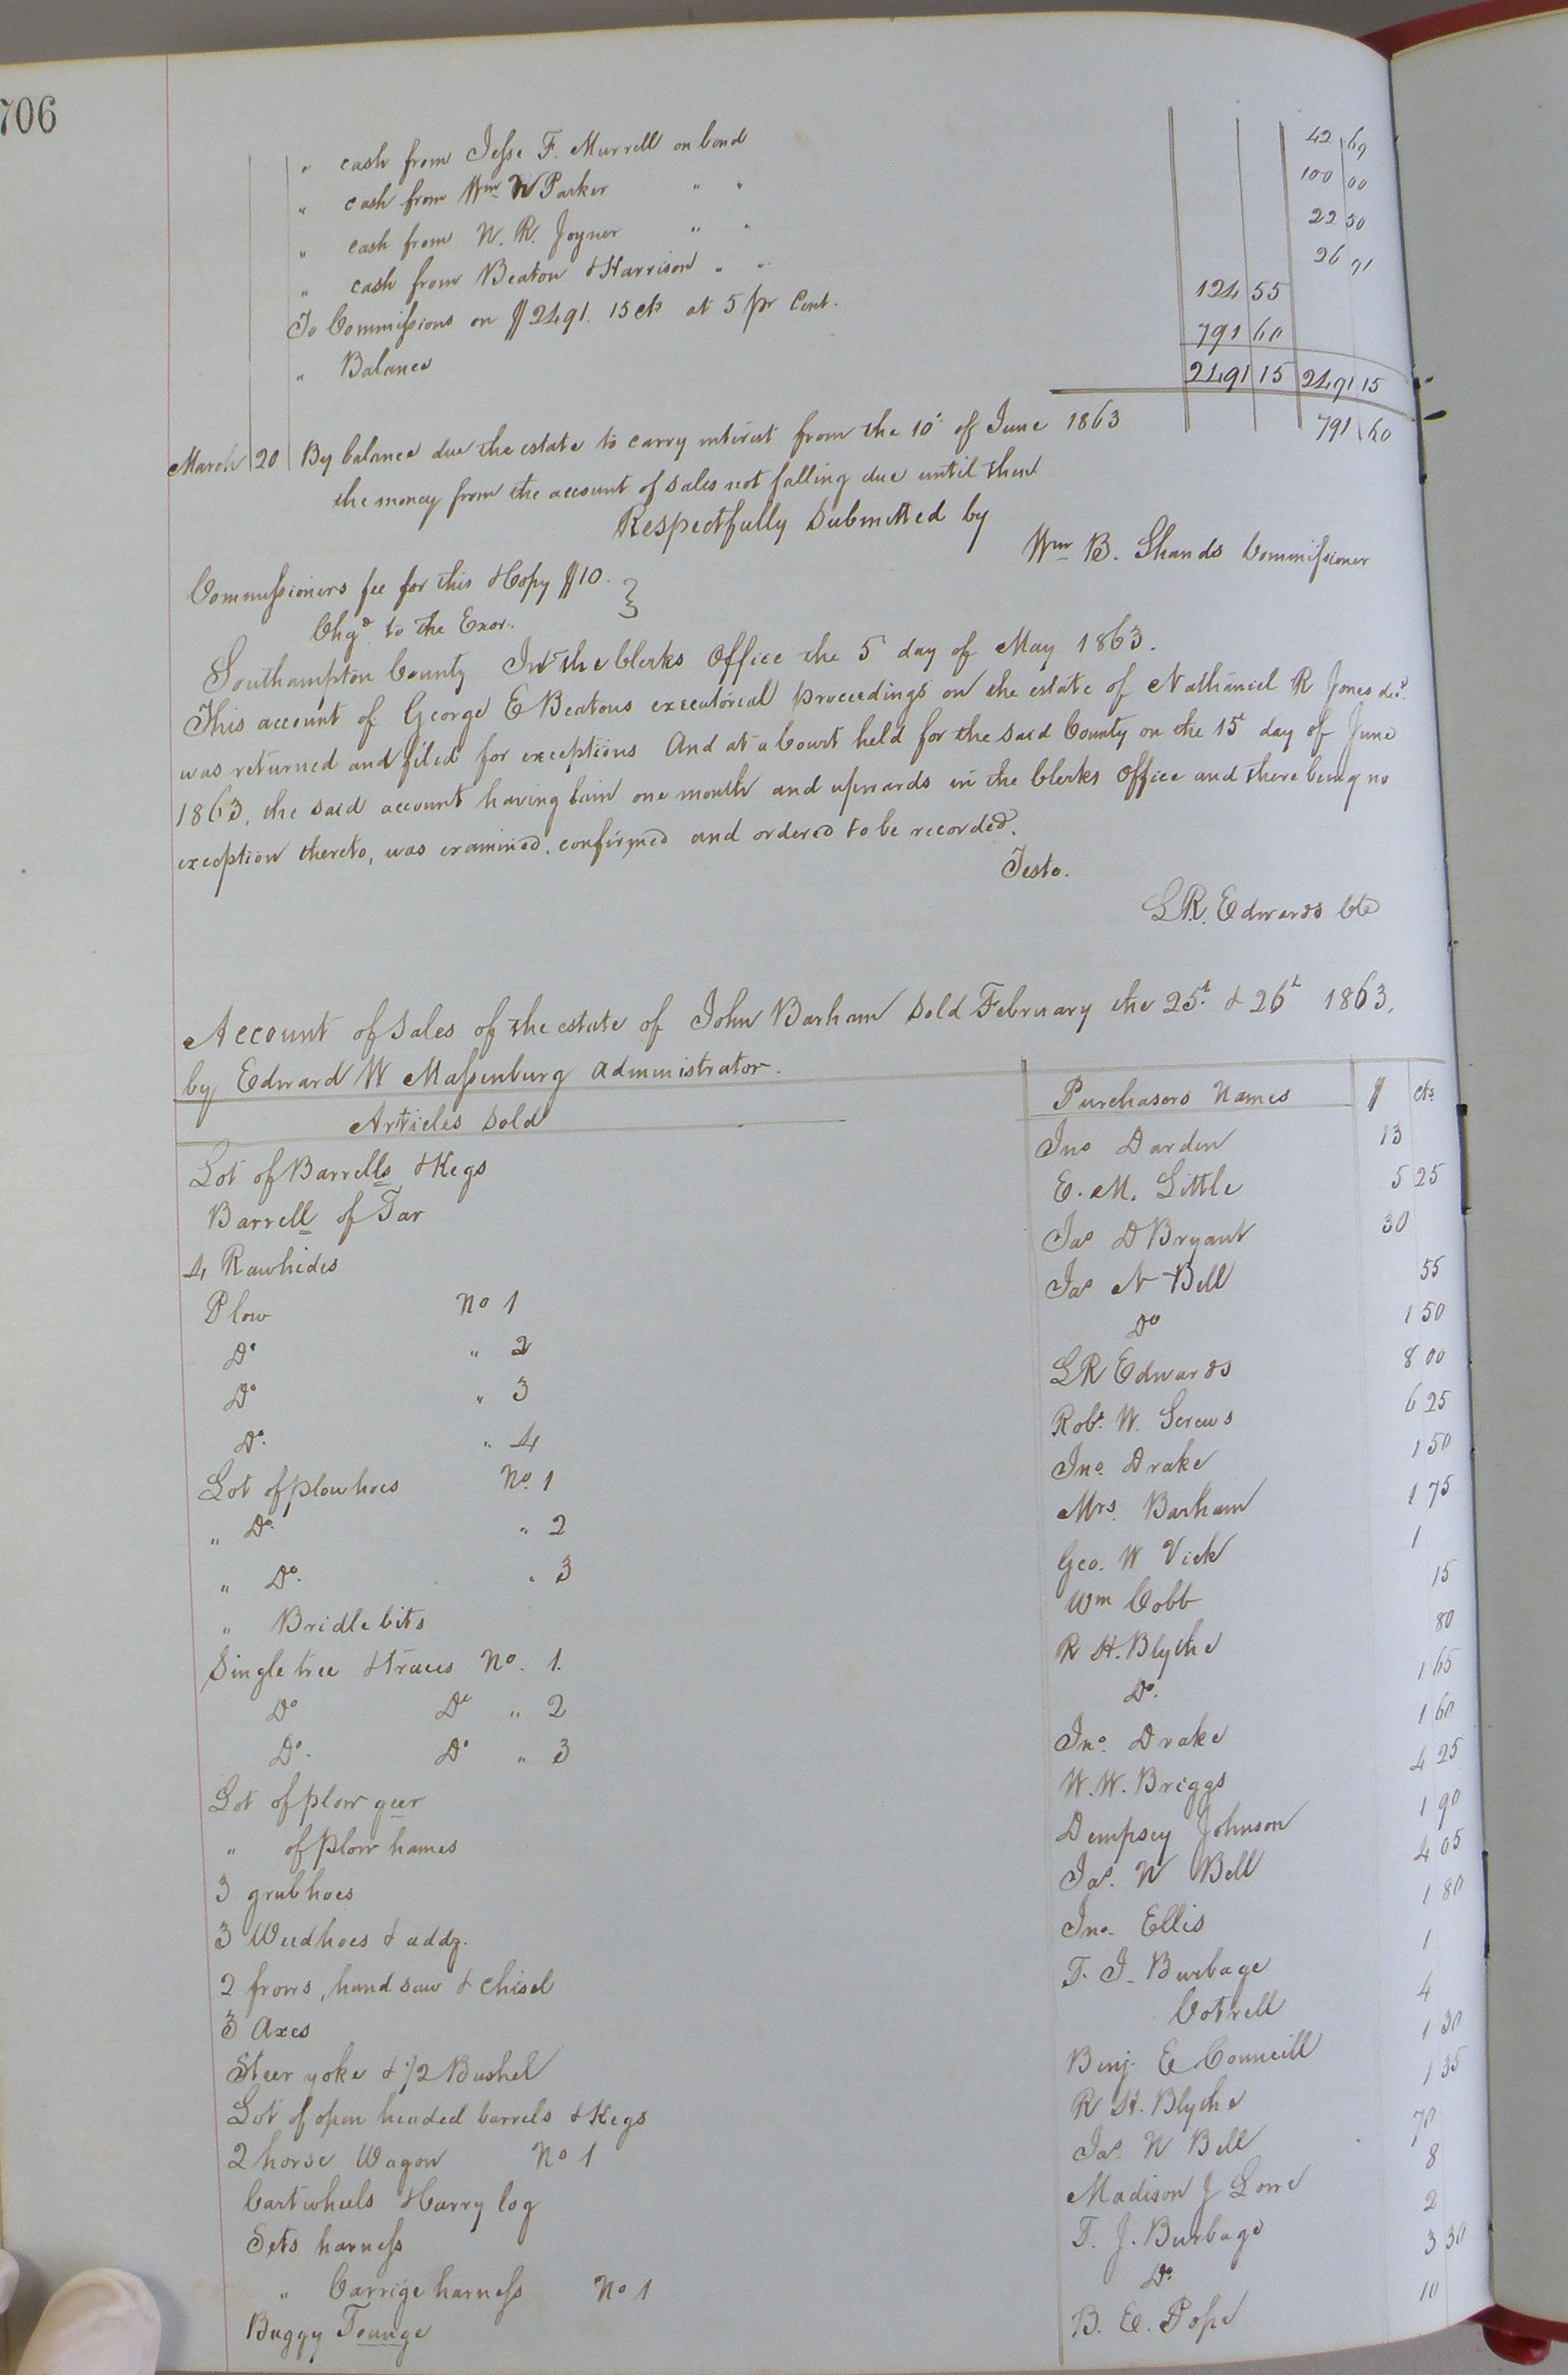 706
" cash from Jesse F. Murrell on bond 42 69
" cash from Wm W Parker " " 100 00
" cash from N. R. Joyner " " 22 50
" cash from Beaton & Harrison " " 26 91
To Commissions on $2491. 15 cts at 5 pr Cent. 124 55
" Balance 791 60
2491 15 2491 15
March 20 By balance due the estate to carry interest from the 10t of June 1863 791 60
the money from the account of sales not falling due until then
Respectfully Submitted by
Wm B. Shands Commissioner
Commissioners fee for this & Copy $10. }
Chgd to the Exor.
Southampton County In the Clerks Office the 5 day of May 1863.
This account of George E Beatons executorial proceedings on the estate of Nathaniel R Jones decd.
was returned and filed for exceptions And at a Court held for the said County on the 15t day of June
1863, the said account having lain one month and upwards in the Clerks Office and there being no
exception thereto, was examined, confirmed and ordered to be recorded.
Teste.
L.R. Edwards Clk
Account of Sales of the estate of John Barham Sold February the 25t & 26t 1863,
by Edward W Massenburg Administrator.
Articles Sold Purchasers Names $ cts
Lot of Barrells & Kegs Jno Darden 13
Barrell of Tar E. M. Little 5 25
4 Rawhides Jas D Bryant 30
Plow No 1 Jas N Bell 55
Do " 2 Do 1 50
Do " 3 LR Edwards 8 00
Do. " 4 Robt. W. Screws 6 25
Lot of plowhoes No. 1 Jno. Drake 1 50
" Do. " 2 Mrs. Barham 1 75
" Do. " 3 Geo. W Vick 1
" Bridle bits Wm Cobb 15
Single tree & traces No. 1. R H. Blythe 80
Do Do " 2 Do. 1 65
Do. Do " 3 Jno. Drake 1 60
Lot of plow geer W. W. Briggs 4 25
" of plow hames Dempsey Johnson 1 90
3 grubhoes Jas. N Bell 4 05
3 Weedhoes & addg. Jno. Ellis 1 80
2 frows, hand saw & Chisel T. J. Burbage 1
3 Axes Cotrell 4
Steer yoke & 1/2 Bushel Benj. E Councill 1 30
Lot of open headed barrels & Kegs R H. Blythe 1 35
2 horse Wagon No 1 Jas. N Bell 70
Cart wheels & Carry log Madison J Lowe 8
Sets harness T. J. Burbage 2
" Carrige harness No 1 Do. 3 30
Buggy Tounge B. E. Pope 10